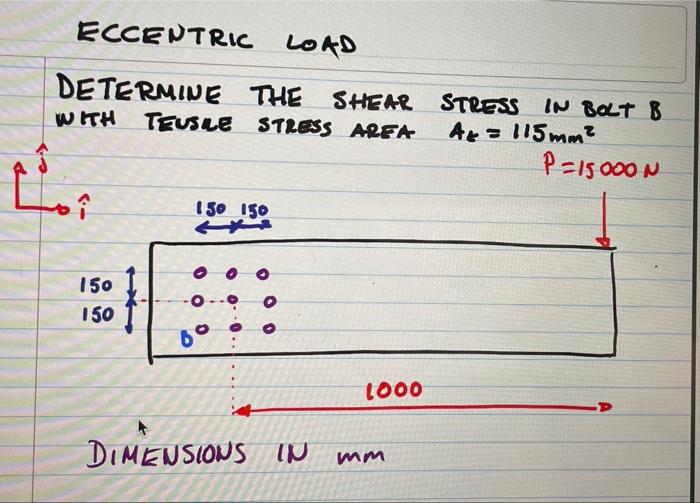 ECCENTRIC LOAD
DETERMINE THE SHEAR STRESS IN BOLT B
WITH TENSILE STRESS AREA At = 115mm²
P=15000N
ĵ
î
150 150
150
150
B
1000
DIMENSIONS IN mm